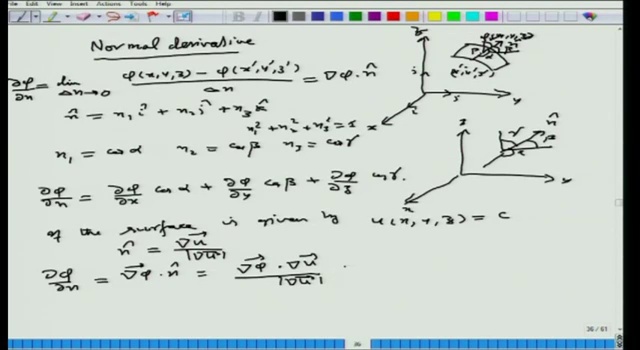 File Edit View Insert Actions Tools Help
Normal derivative
∂φ/∂n = lim Δn→0 (φ(x,y,z) − φ(x',y',z'))/Δn = ∇φ·n̂
n̂ = n₁ î + n₂ ĵ + n₃ k̂
n₁² + n₂² + n₃² = 1
n₁ = cos α n₂ = cos β n₃ = cos γ
∂φ/∂n = ∂φ/∂x cos α + ∂φ/∂y cos β + ∂φ/∂z cos γ.
If the surface is given by u(x, y, z) = c
n̂ = ∇u/|∇u|
∂φ/∂n = ∇φ · n̂ = ∇φ · ∇u/|∇u|
z
y
x
z
n̂
γ
β
α
y
x
36 / 61
36